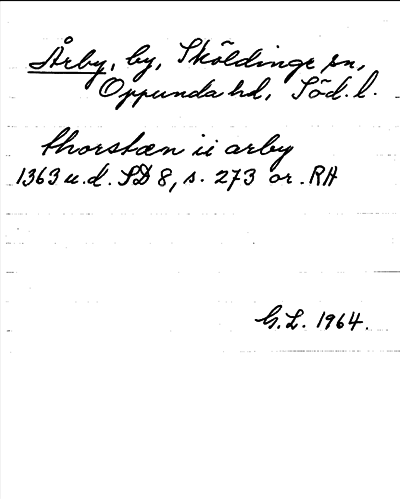 Årby, by, Sköldinge sn,
Oppunda hd, Söd. l.
thorstæn ii arby
1363 u.d. SD 8, s. 273 or. RA
G.L. 1964.